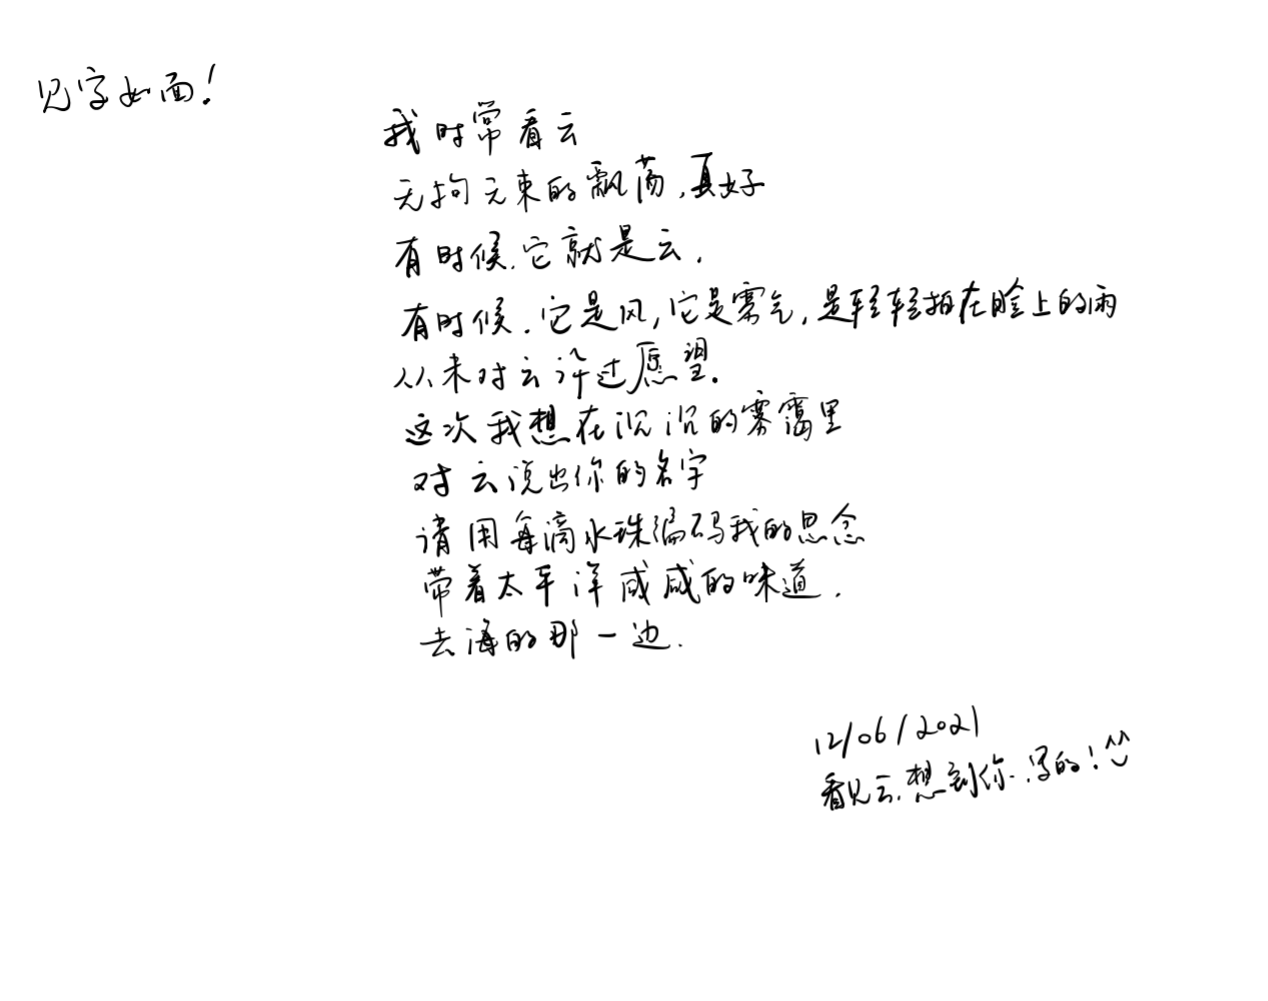 见字如面!
我时常看云
无拘无束的飘荡,真好
有时候.它就是云.
有时候.它是风,它是雾气,是轻轻拍在脸上的雨
从未对云许过愿望.
这次我想在沉沉的雾霭里
对云说出你的名字
请用每滴水珠编码我的思念
带着太平洋咸咸的味道.
去海的那一边.
12/06/2021
看见云.想到你.写的!^^